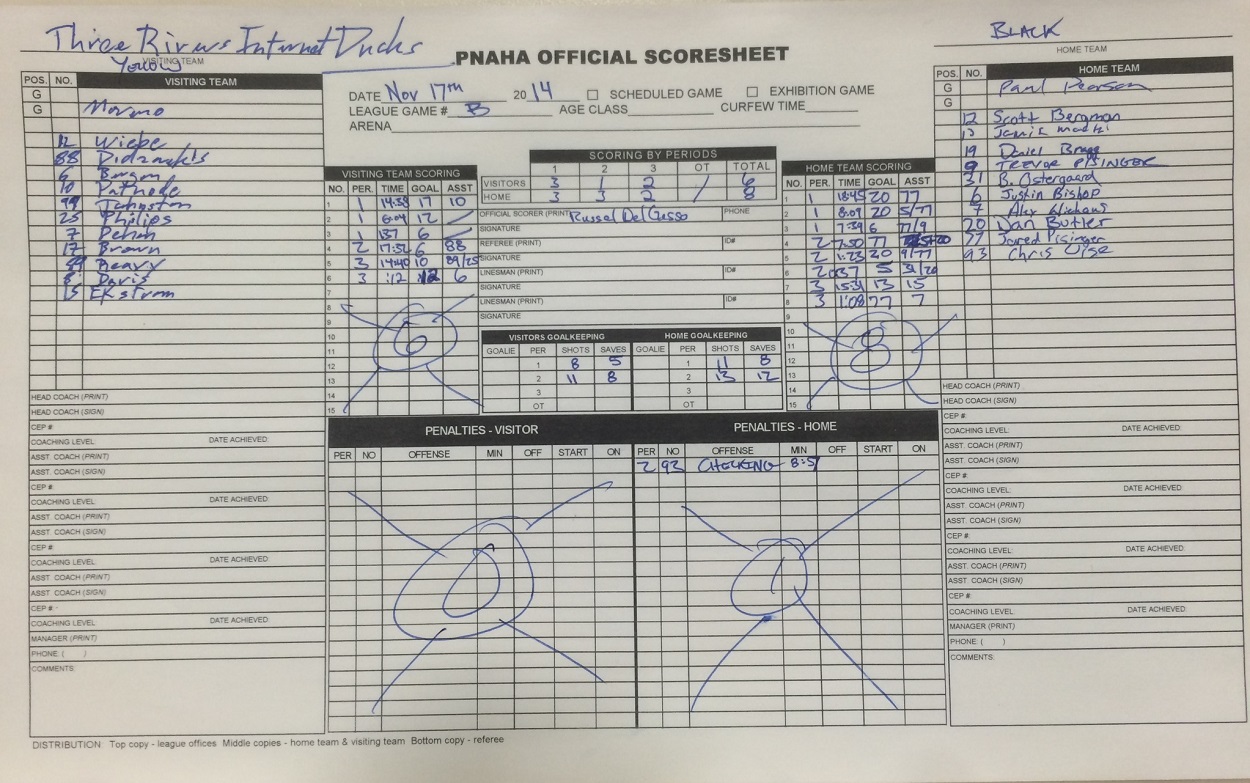 Three Rivers Internet Ducks
BLACK
PNAHA OFFICIAL SCORESHEET
HOME TEAM
VISITING TEAM
Yellow
POS. NO. VISITING TEAM
POS. NO. HOME TEAM
G
G Mormo
12 Wiebe
88
6
10 Pathode
99 Johnston
25 Philips
7 Pehm
17 Brown
89 Reavy
8 Davis
15 Ekstrom
DATE Nov 17th 2014 SCHEDULED GAME EXHIBITION GAME
LEAGUE GAME # B AGE CLASS CURFEW TIME
ARENA
G Paul Pearson
G
12 Scott Bergman
13 Jamie
19 Daniel Bragg
9 TREVOR PISINGER
31 B. Ostergaard
6 Justin Bishop
7 Alex
20 Dan Butler
77 Jared Pisinger
93 Chris
VISITING TEAM SCORING
NO. PER. TIME GOAL ASST
1 1 14:38 17 10
2 1 6:04 12
3 1 137 6
4 2 17:32 6 88
5 3 14:40 10 89/25
6 3 :12 12 6
7
8
9
10
11
12
13
14
15
6
SCORING BY PERIODS
1 2 3 OT TOTAL
VISITORS 3 1 2 / 6
HOME 3 3 2 8
OFFICIAL SCORER (PRINT) Russel DelGesso PHONE
SIGNATURE
REFEREE (PRINT) ID#
SIGNATURE
LINESMAN (PRINT) ID#
SIGNATURE
LINESMAN (PRINT) ID#
SIGNATURE
VISITORS GOALKEEPING HOME GOALKEEPING
GOALIE PER SHOTS SAVES GOALIE PER SHOTS SAVES
1 8 5 1 11 8
2 11 8 2 13 12
3 3
OT OT
HOME TEAM SCORING
NO. PER. TIME GOAL ASST
1 1 18:45 20 77
2 1 8:09 20 5/77
3 1 7:39 6 77/9
4 2 7:50 77
5 2 1:23 20 9/77
6 2 :037 5 31/20
7 3 15:31 13 15
8 3 1:08 77 7
9
10
11
12
13
14
15
8
PENALTIES - VISITOR PENALTIES - HOME
PER NO OFFENSE MIN OFF START ON PER NO OFFENSE MIN OFF START ON
2 93 CHECKING 8:51
0 1
HEAD COACH (PRINT)
HEAD COACH (SIGN)
CEP #
COACHING LEVEL: DATE ACHIEVED:
ASST. COACH (PRINT)
ASST. COACH (SIGN)
CEP #:
COACHING LEVEL: DATE ACHIEVED:
ASST. COACH (PRINT)
ASST. COACH (SIGN)
CEP #:
COACHING LEVEL: DATE ACHIEVED:
ASST. COACH (PRINT)
ASST. COACH (SIGN)
CEP #:
COACHING LEVEL: DATE ACHIEVED:
MANAGER (PRINT)
PHONE: ( )
COMMENTS:
HEAD COACH (PRINT)
HEAD COACH (SIGN)
CEP #
COACHING LEVEL: DATE ACHIEVED:
ASST. COACH (PRINT)
ASST. COACH (SIGN)
CEP #:
COACHING LEVEL: DATE ACHIEVED:
ASST. COACH (PRINT)
ASST. COACH (SIGN)
CEP #:
COACHING LEVEL: DATE ACHIEVED:
ASST. COACH (PRINT)
ASST. COACH (SIGN)
CEP #:
COACHING LEVEL: DATE ACHIEVED:
MANAGER (PRINT)
PHONE: ( )
COMMENTS:
DISTRIBUTION Top copy - league offices Middle copies - home team & visiting team Bottom copy - referee